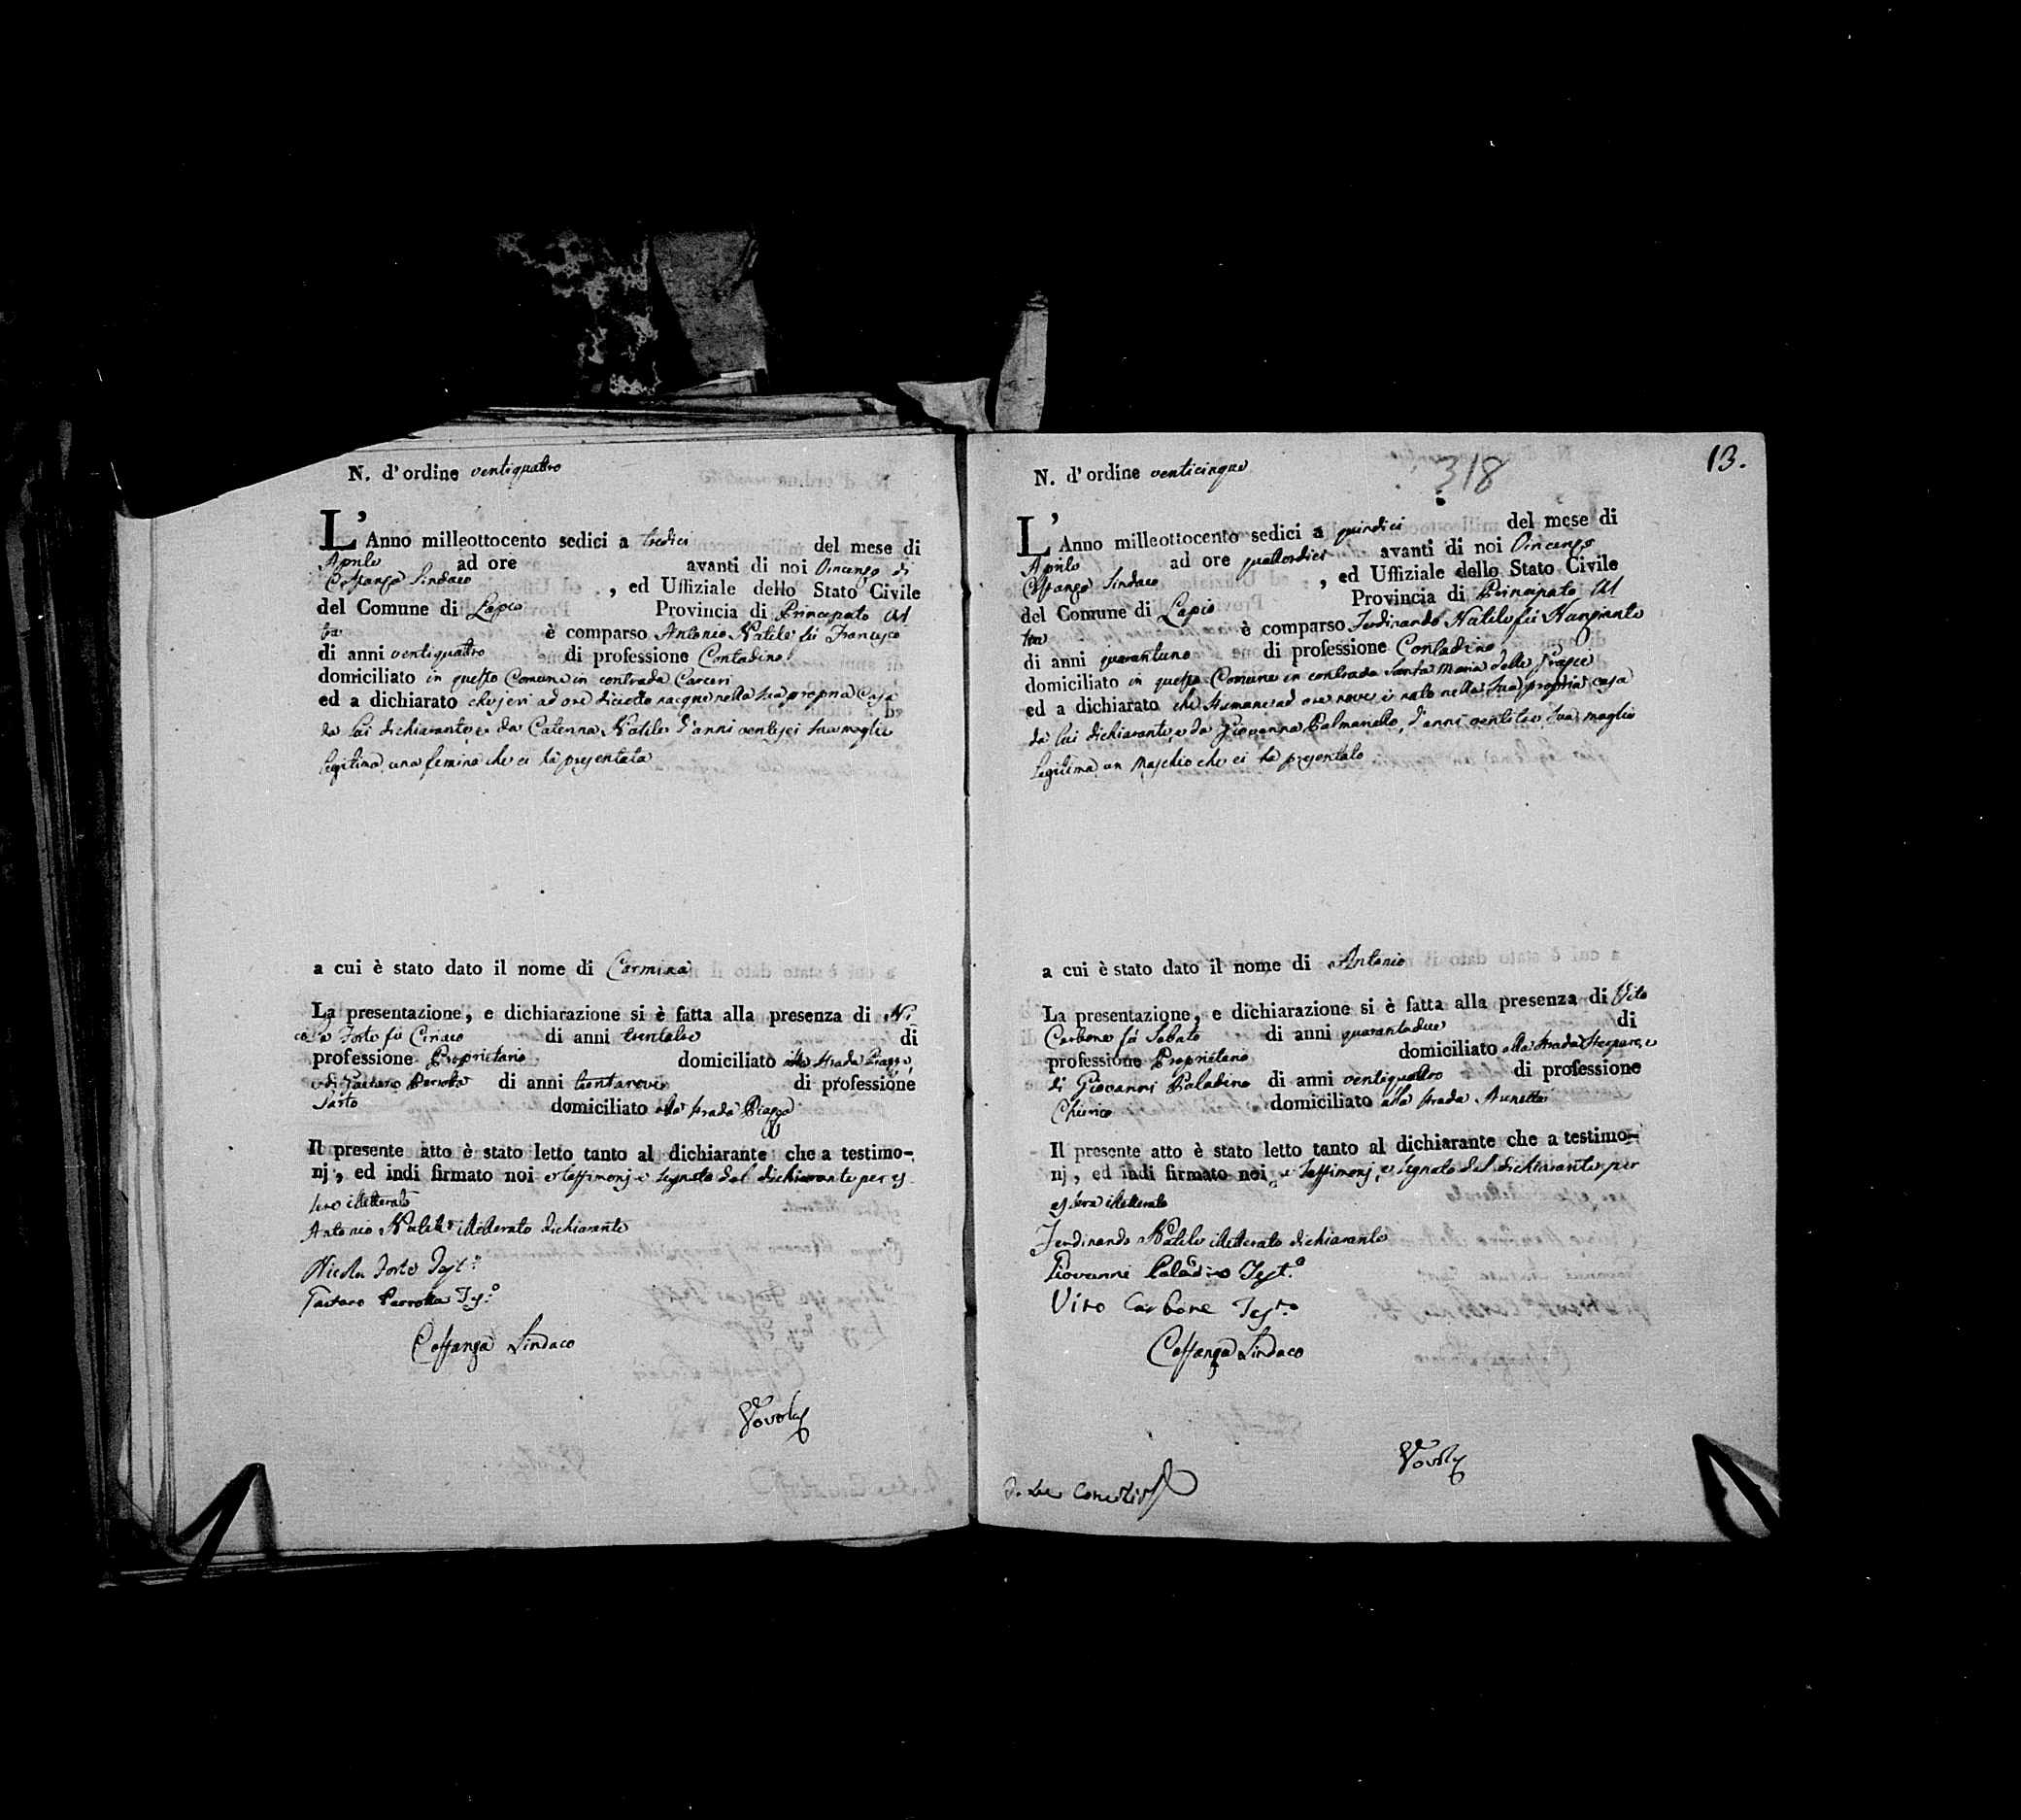 N. d'ordine ventiquattro
L'Anno milleottocento sedici a tredici del mese di
Aprile ad ore avanti di noi Vincenzo di
Costanzo Sindaco , ed Uffiziale dello Stato Civile
del Comune di Lapio Provincia di Principato Ul
tra è comparso Antonio Natile fù Francesco
di anni ventiquattro di professione Contadino
domiciliato in questo Comune in contrada Carceri
ed a dichiarato che jeri ad ore diciotto nacque nella sua propria Casa
da lui dichiarante e da Caterina Natile d'anni ventisei sua moglie
legitima una femina che ci hà presentata
a cui è stato dato il nome di Carmina
La presentazione, e dichiarazione si è fatta alla presenza di Ni
cola Forte fù Ciriaco di anni trentatre di
professione Proprietario domiciliato alla strada Piazza,
e di Gaetano Perrotta di anni trentanove di professione
Sarto domiciliato alla strada Piazza
Il presente atto è stato letto tanto al dichiarante che a testimo-
nj, ed indi firmato noi e testimonj e segnato dal dichiarante per es
sere illetterato
Antonio Natile illetterato dichiarante
Nicola Forte Test.o
Gaetano Perrotta Tes.o
Costanza Sindaco
13.
318
N. d'ordine venticinque
L'Anno milleottocento sedici a quindici del mese di
Aprile ad ore quattordici avanti di noi Vincenzo
Costanzo Sindaco , ed Uffiziale dello Stato Civile
del Comune di Lapio Provincia di Principato Ul
tra è comparso Ferdinando Natile fù
di anni quarantuno di professione Contadino
domiciliato in questo Comune in contrada Santa Maria delle Grazie
ed a dichiarato che stamane ad ore nove è nato nella sua propria casa
da lui dichiarante, e da Giovanna Palmariello, d'anni ventitre sua moglie
legitima un Maschio che ci ha presentato
a cui è stato dato il nome di Antonio
La presentazione, e dichiarazione si è fatta alla presenza di Vito
Carbone fù Sabato di anni quarantadue di
professione Proprietario domiciliato alla strada e
di Giovanni Paladino di anni ventiquattro di professione
domiciliato alla strada
Il presente atto è stato letto tanto al dichiarante che a testimo-
nj, ed indi firmato noi, e testimonj, e segnato dal dichiarante per
essere illetterato
Ferdinando Natile illetterato dichiarante
Giovanni Paladino Test.o
Vito Carbone Tes.o
Costanza Sindaco